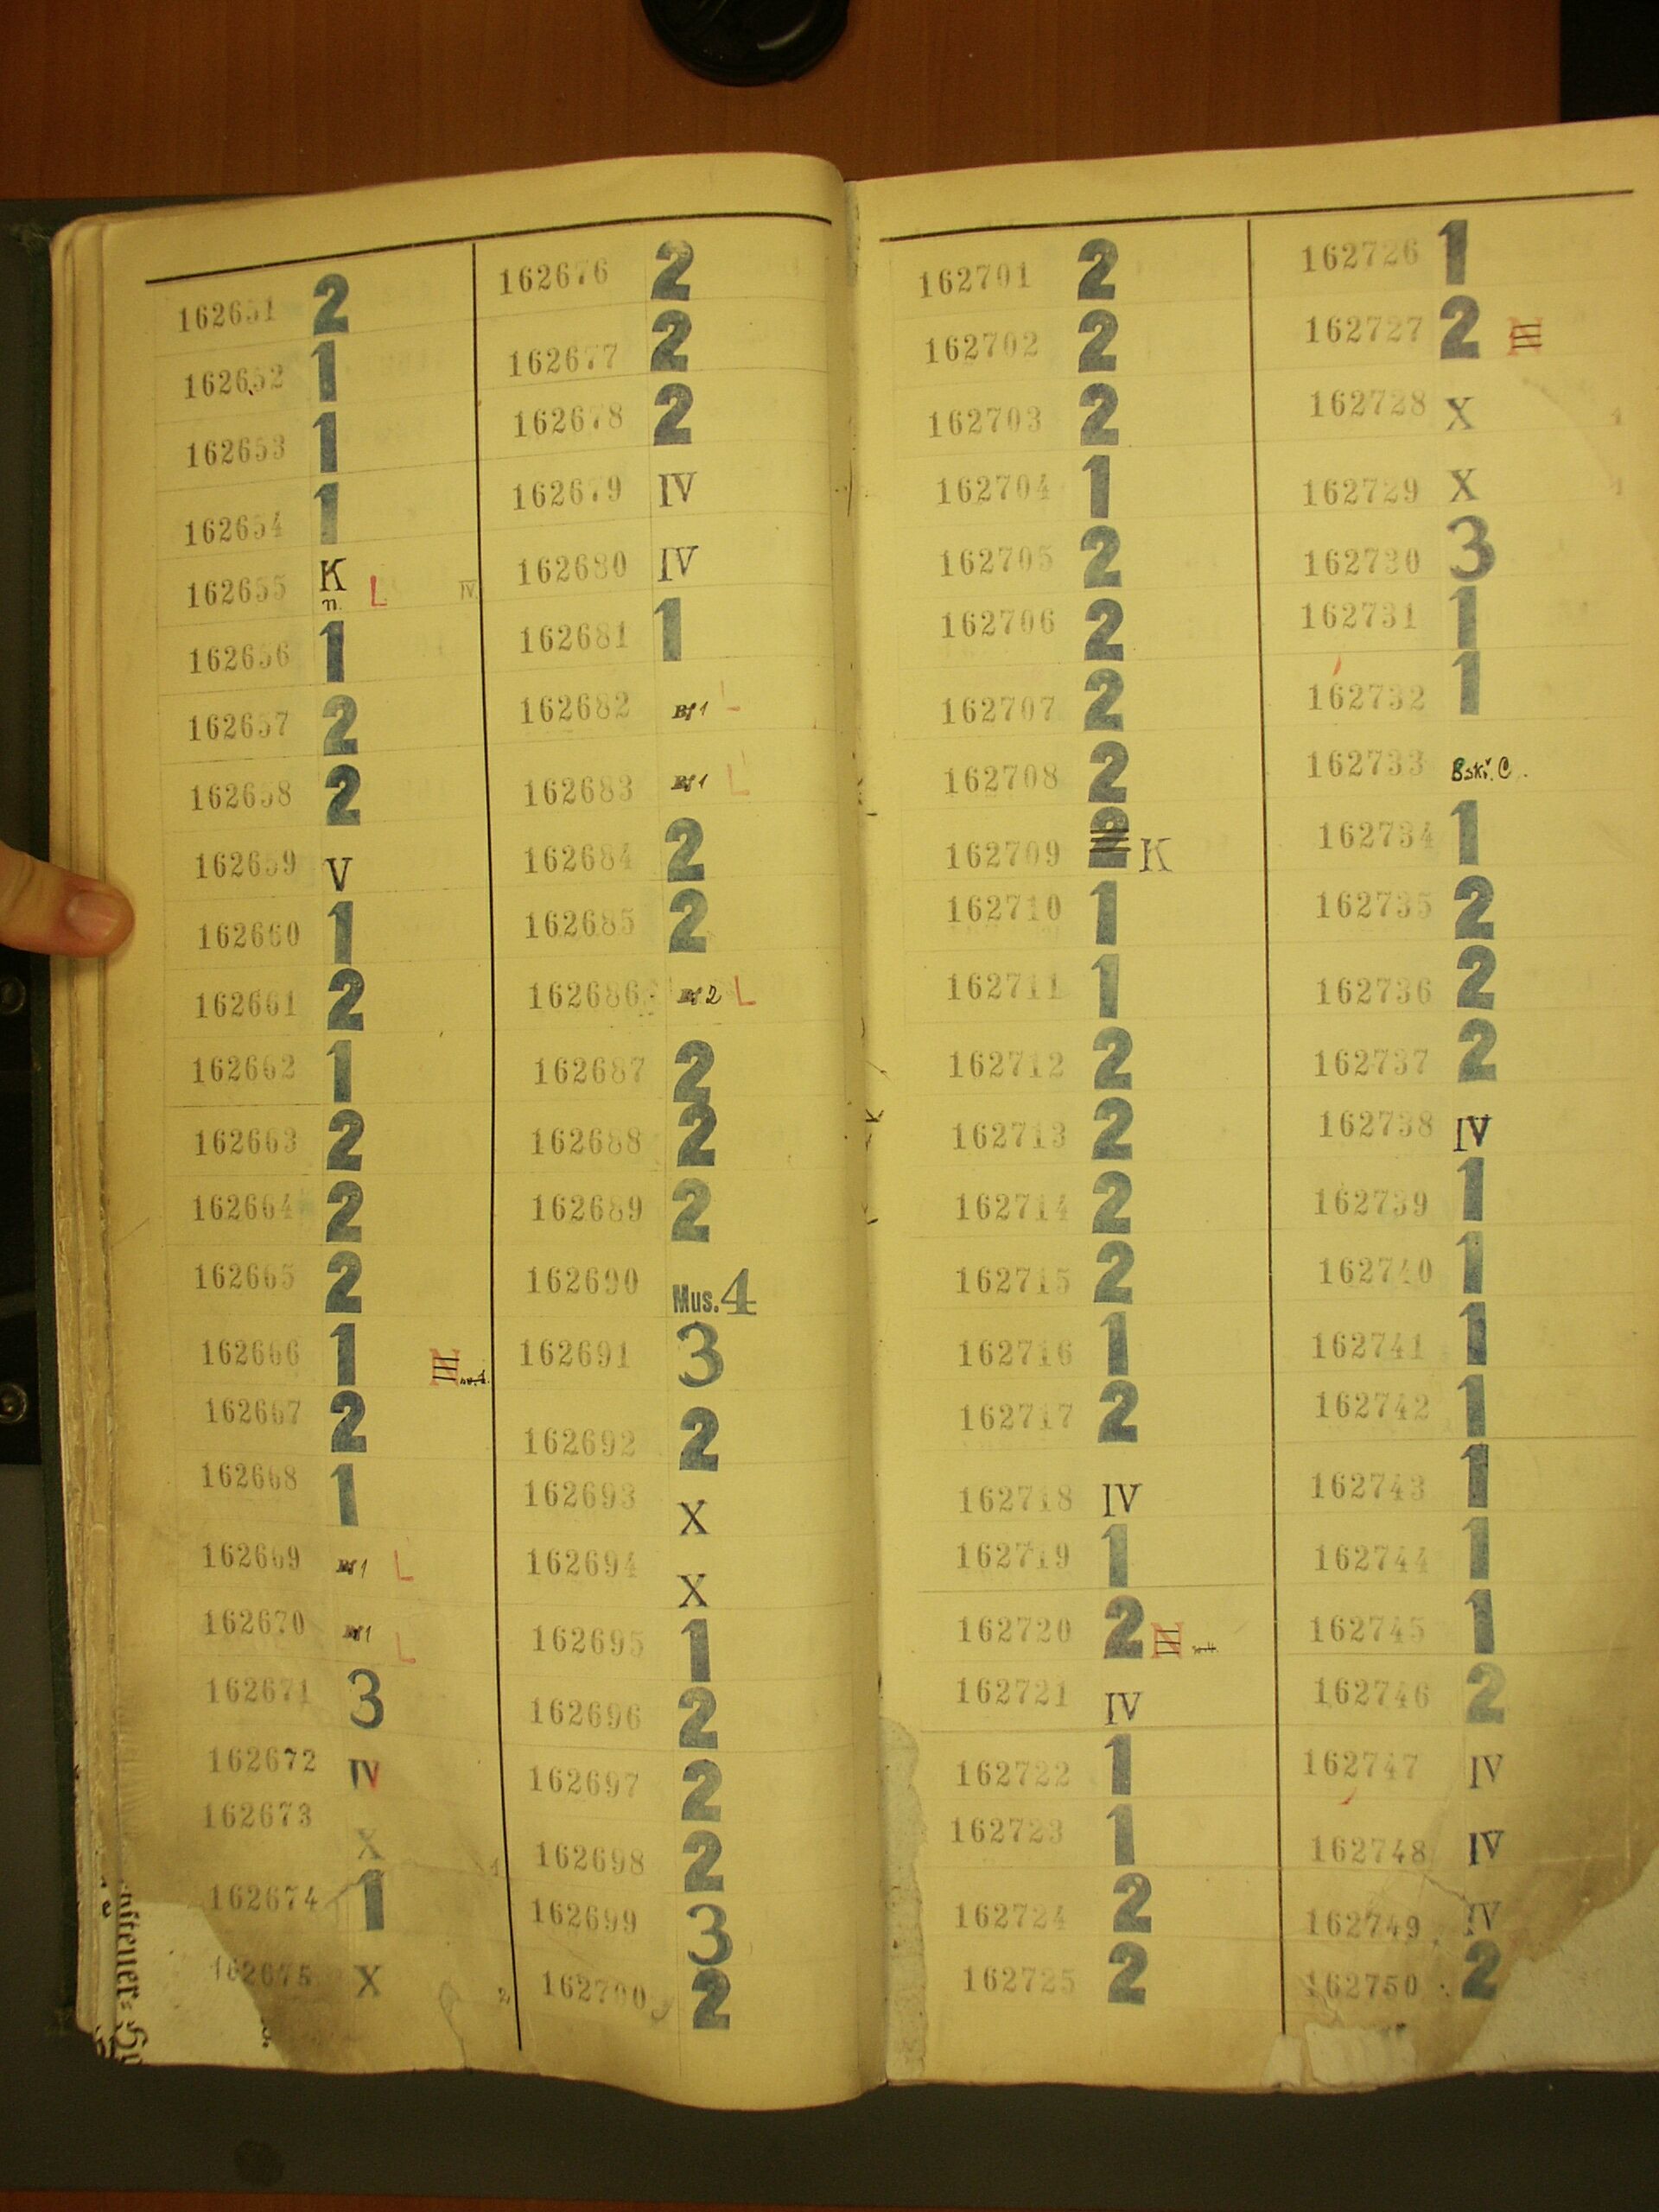 162651 2
162652 1
162653 1
162654 1
162655 K n. L IV.
162656 1
162657 2
162658 2
162659 V
162660 1
162661 2
162662 1
162663 2
162664 2
162665 2
162666 1 N
162667 2
162668 1
162669 Bf 1 L
162670 Bf 1 L
162671 3
162672 IV
162673 X 1
162674 1
162675 X 2
162676 2
162677 2
162678 2
162679 IV
162680 IV
162681 1
162682 Bf 1 L
162683 Bf 1 L
162684 2
162685 2
162686 Bf 2 L
162687 2
162688 2
162689 2
162690 Mus. 4
162691 3
162692 2
162693 X
162694 X
162695 1
162696 2
162697 2
162698 2
162699 3
162700 2
162701 2
162702 2
162703 2
162704 1
162705 2
162706 2
162707 2
162708 2
162709 2 K
162710 1
162711 1
162712 2
162713 2
162714 2
162715 2
162716 1
162717 2
162718 IV
162719 1
162720 2 N
162721 IV
162722 1
162723 1
162724 2
162725 2
162726 1
162727 2 N
162728 X 1
162729 X 1
162730 3
162731 1
162732 1
162733 Bski. C.
162734 1
162735 2
162736 2
162737 2
162738 IV
162739 1
162740 1
162741 1
162742 1
162743 1
162744 1
162745 1
162746 2
162747 IV
162748 IV
162749 IV
162750 2